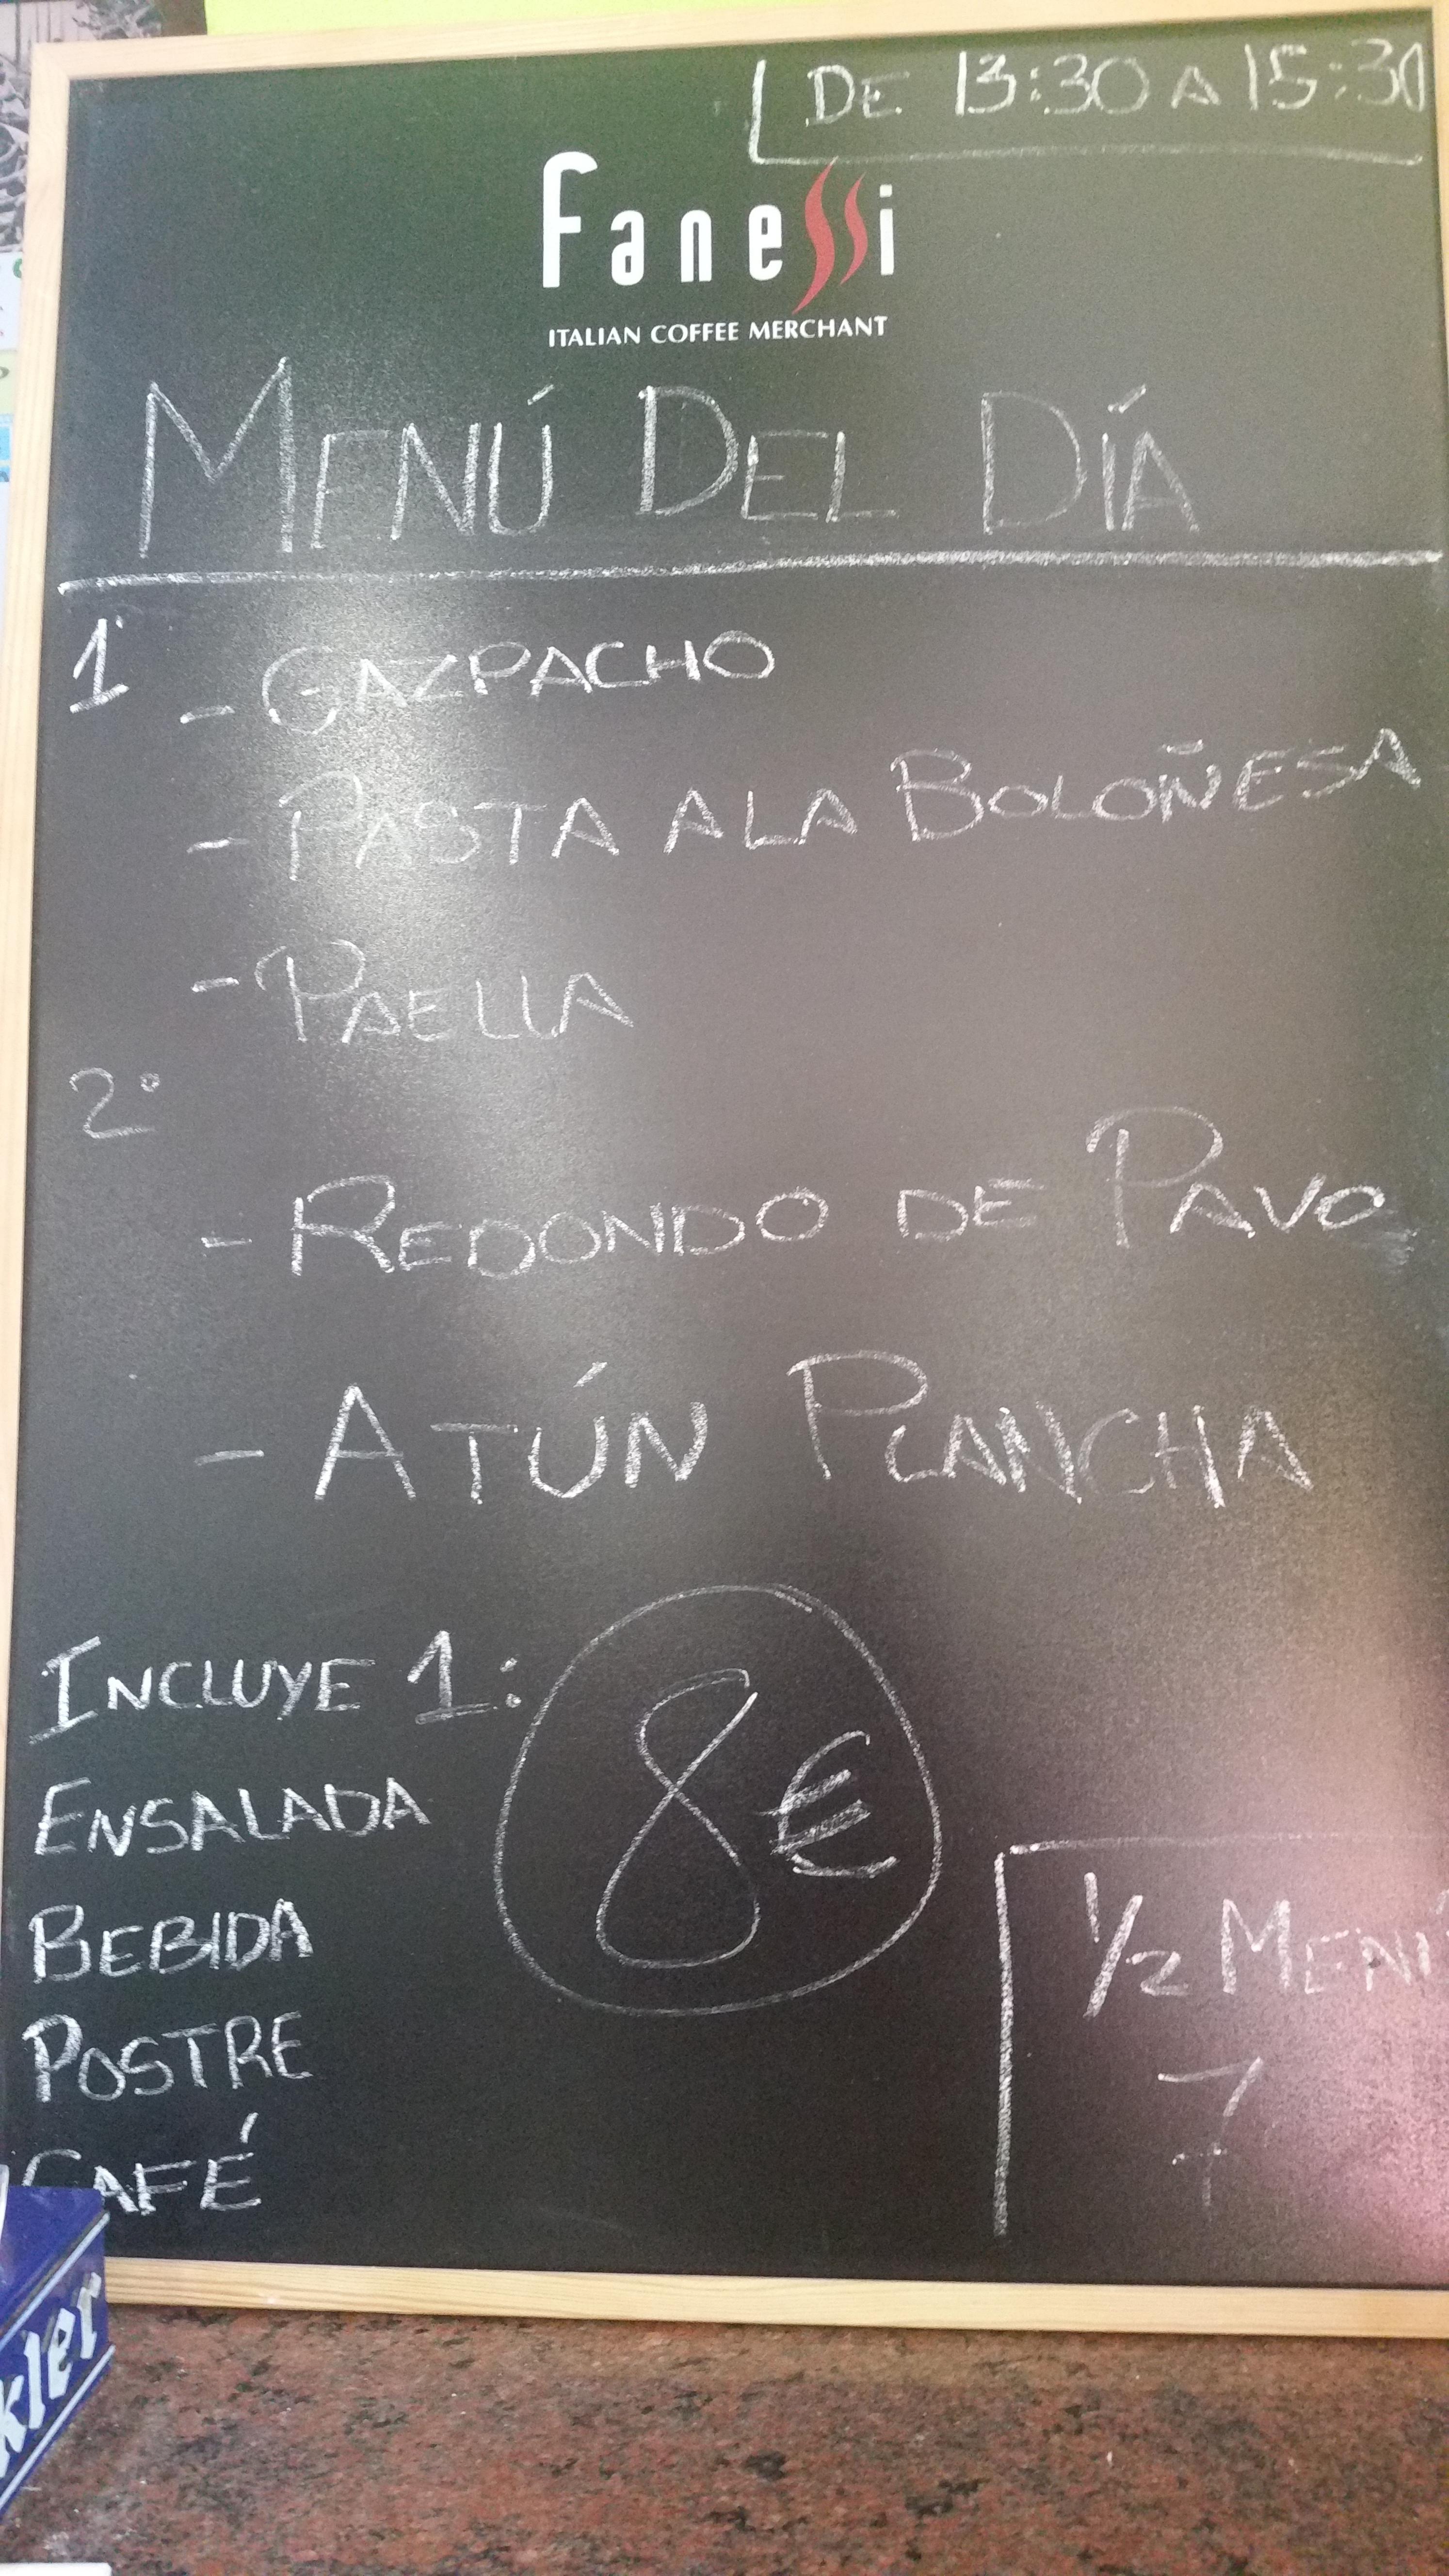 DE 13:30 A 15:30
Fanessi
ITALIAN COFFEE MERCHANT
MENÚ DEL DÍA
1º
- GAZPACHO
- PASTA A LA BOLOÑESA
- PAELLA
2º
- REDONDO DE PAVO
- ATÚN PLANCHA
INCLUYE 1:
ENSALADA
BEBIDA
POSTRE
CAFÉ
8€
1/2 MENÚ
7
kler